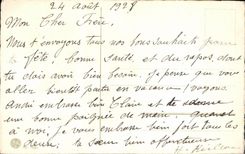 24 août 1928
Mon Cher Frère,
Nous t'envoyons tous nos bons souhaits pour
ta fête. bonne santé, et du repos, dont
tu dois avoir bien besoin. je pense que vous
allez bientôt partir en vacances / voyages
André embrasse bien Claire et te donne
une bonne poignée de main. Quand
à moi, je vous embrasse bien fort tous les
deux, ta sœur bien affectueuse
H.